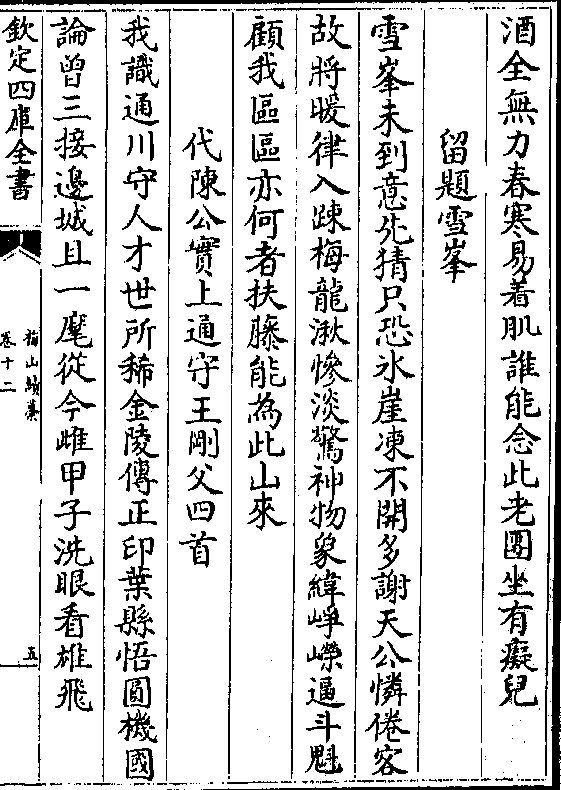 酒全無力春寒易着肌誰能念此老團坐有癡兒
留題雪峯
雪峯未到意先猜只恐氷崖凍不開多謝天公憐倦客
故將暖律入踈梅龍湫慘淡驚神物象緯崢嶸逼斗魁
顧我區區亦何者扶藤能為此山來
代陳公實上通守王剛父四首
我識通川守人才世所稀金陵傳正印葉縣悟圓機國
論曽三接邊城且一麾從今雌甲子洗眼看雄飛
欽定四庫全書
梅山續藁
卷十二
五